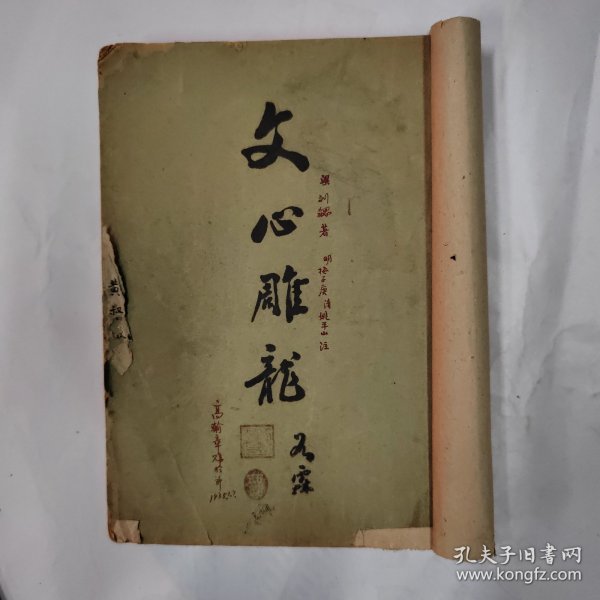 文心雕龙
梁刘勰著
明梅子庚清姚平山注
若霖
高翰章
孔夫子旧书网
www.kongfz.com